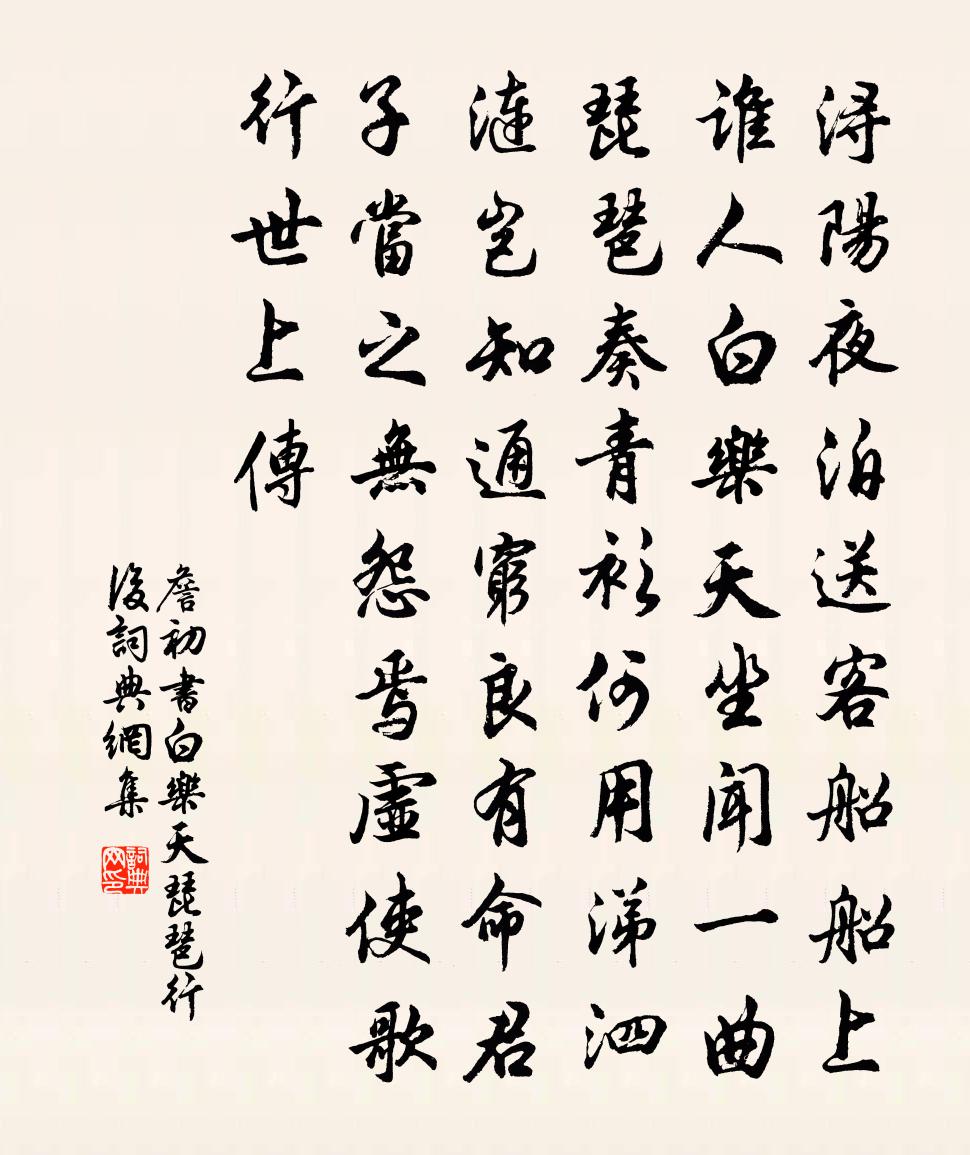 浔陽夜泊送客船船上
誰人白樂天坐闻一曲
琵琶奏青衫何用涕泗
漣岂知通窮良有命君
子當之無怨焉虛使歌
行世上傳
詹初書白樂天琵琶行
後詞典網集
詞典網印